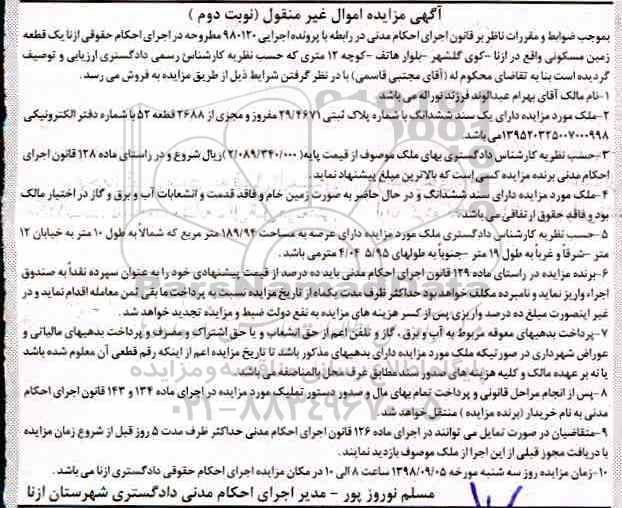 آگهی مزایده اموال غیر منقول (نوبت دوم )
بموجب ضوابط و مقررات ناظر بر قانون اجرای احکام مدنی در رابطه با پرونده اجرایی ۹۸۰۱۲۰ مطروحه در اجرای احکام حقوقی ازنا یک قطعه
زمین مسکونی واقع در ازنا -کوی گلشهر -بلوار هاتف -کوچه ۱۲ متری که حسب نظریه کارشناس رسمی دادگستری ارزیابی و توصیف
گردیده است بنا به تقاضای محکوم له (آقای مجتبی قاسمی) با در نظر گرفتن شرایط ذیل از طریق مزایده به فروش می رسد.
۱-نام مالک آقای بهرام عبدالوند فرزند نوراله می باشد
۲-ملک مورد مزایده دارای یک سند ششدانگ با شماره پلاک ثبتی ۲۹/۴۶۷۱ مفروز و مجزی از ۲۶۸۸ قطعه ۵۲ با شماره دفتر الکترونیکی
۱۳۹۵۲۰۳۲۵۰۰۷۰۰۰۹۹۸ می باشد
۳-حسب نظریه کارشناس دادگستری بهای ملک موصوف از قیمت پایه( ۲/۰۸۹/۳۴۰/۰۰۰ )ریال شروع و در راستای ماده ۱۲۸ قانون اجرای
احکام مدنی برنده مزایده کسی است که بالاترین مبلغ پیشنهاد نماید
۴-ملک مورد مزایده دارای سند ششدانگ و در حال حاضر به صورت زمین خام و فاقد قدمت و انشعابات آب و برق و گاز در اختیار مالک
بود و فاقد حقوق ارتفاقی می باشد
۵-حسب نظریه کارشناس دادگستری ملک مورد مزایده دارای عرصه به مساحت ۱۸۹/۹۴ متر مربع که شمالاً به طول ۱۰ متر به خیابان ۱۲
متر -شرقاً و غرباً به طول ۱۹ متر -جنوباً به طولهای ۵/۹۵ ۴/۰۴ متر می باشد .
۶-برنده مزایده در راستای ماده ۱۲۹ قانون اجرای احکام مدنی باید ده درصد از قیمت پیشنهادی خود را به عنوان سپرده نقداً به صندوق
اجراء واریز نماید و نامبرده مکلف خواهد بود حداکثر ظرف مدت یکماه از تاریخ مزایده نسبت به پرداخت ما بقی ثمن معامله اقدام نماید و در
غیر اینصورت مبلغ ده درصد واریزی پس از کسر هزینه های مزایده به نفع دولت ضبط و مزایده تجدید خواهد شد.
۷-پرداخت بدهیهای معوقه مربوط به آب و برق ، گاز و تلفن اعم از حق انشعاب و یا حق اشتراک و مصرف و پرداخت بدهیهای مالیاتی و
عوارض شهرداری در صورتیکه ملک مورد مزایده دارای بدهیهای مذکور باشد تا تاریخ مزایده اعم از اینکه رقم قطعی آن معلوم شده باشد
یا نه بر عهده مالک و کلیه هزینه های صدور سند مطابق عرف محل بالمناصفه می باشد.
۸-پس از انجام مراحل قانونی و پرداخت تمام بهای مال و صدور دستور تملیک مورد مزایده در اجرای ماده ۱۳۴ و ۱۴۳ قانون اجرای احکام
مدنی به نام خریدار (برنده مزایده ) منتقل خواهد شد.
۹-متقاضیان در صورت تمایل می توانند در اجرای ماده ۱۲۶ قانون اجرای احکام مدنی حداکثر ظرف مدت ۵ روز قبل از شروع زمان مزایده
با دریافت مجوز قبلی از این اجرا از ملک موصوف بازدید نمایند .
۱۰-زمان مزایده روز سه شنبه مورخه ۱۳۹۸/۰۹/۰۵ ساعت ۸ الی ۱۰ در مکان مزایده اجرای احکام حقوقی دادگستری ازنا می باشد .
مسلم نوروز پور - مدیر اجرای احکام مدنی دادگستری شهرستان ازنا